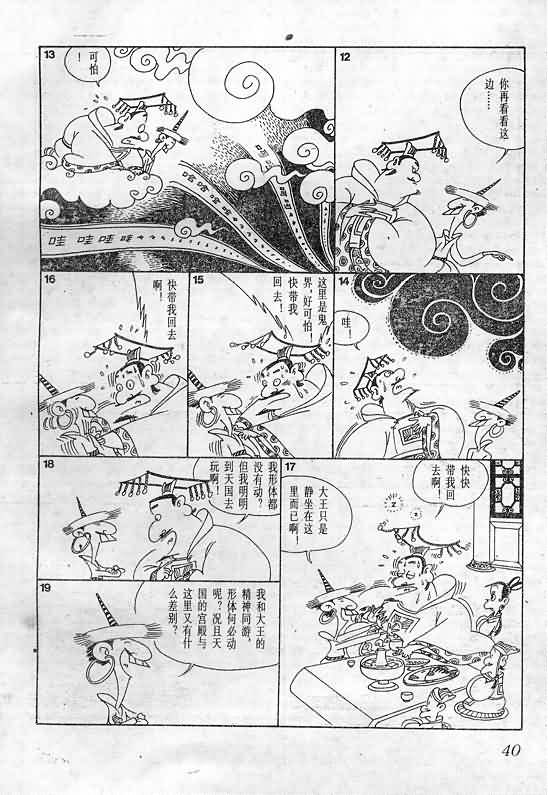 12
你再看看这
边……
13
可怕
！
哇 哇哇哇
14
哇！
15
这里是鬼
界，好可怕！
快带我
回去！
16
快带我回去
啊！
17
快快
带我回
去啊！
大王只是
静坐在这
里而已啊！
18
我形体都
没有动？
但我明明
到天国去
玩啊！
19
我和大王的
精神同游，
形体何必动
呢？况且天
国的宫殿与
这里又有什
么差别？
40